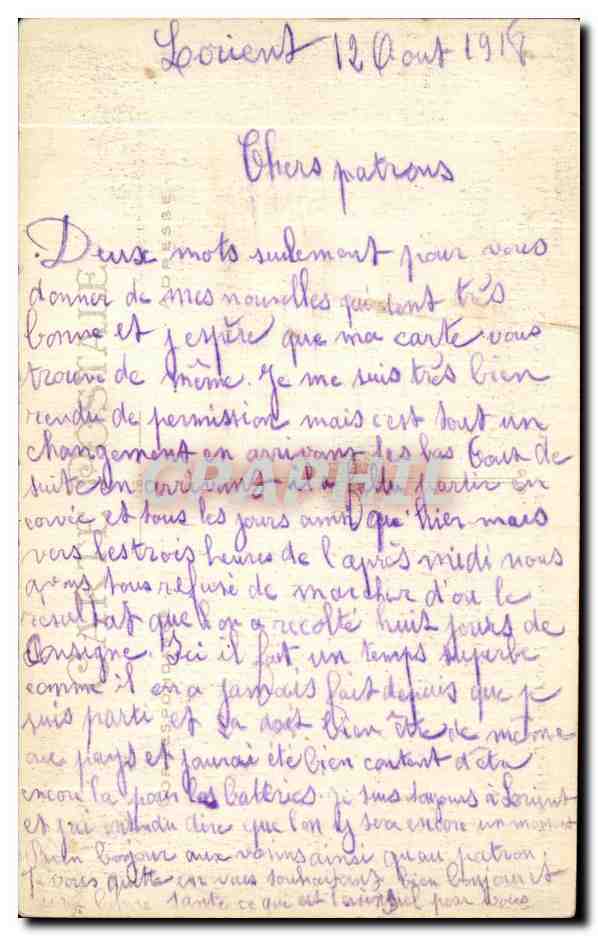 Lorient 12 Aout 1918
Chers patrons
Deux mots seulement pour vous
donner de mes nouvelles qui sont très
bonne et j'espère que ma carte vous
trouve de même. Je me suis très bien
rendu de permission mais c'est tout un
changement en arrivant des bas tout de
suite en arrivant il a fallu partir en
corvée et tous les jours ainsi qu'hier mais
vers les trois heures de l'après midi nous
avons tous refusé de marcher d'ou le
resultat que l'on a recolté huit jours de
Consigne. Ici il fait un temps superbe
comme il en a jamais fait depuis que je
suis parti et sa doit bien être de même
au pays et j'aurai été bien content d'être
encore la pour les battries. Je suis toujours à Lorient
et j'ai entendu dire que l'on y sera encore un moment
Bien bonjour aux voisins ainsi qu'au patron
Je vous quitte en vous souhaitant bien bonjour et
santé ce qui est l'essentiel pour vous
CARTE POSTALE
CORRESPONDANCE
ADRESSE
CPAPHIL